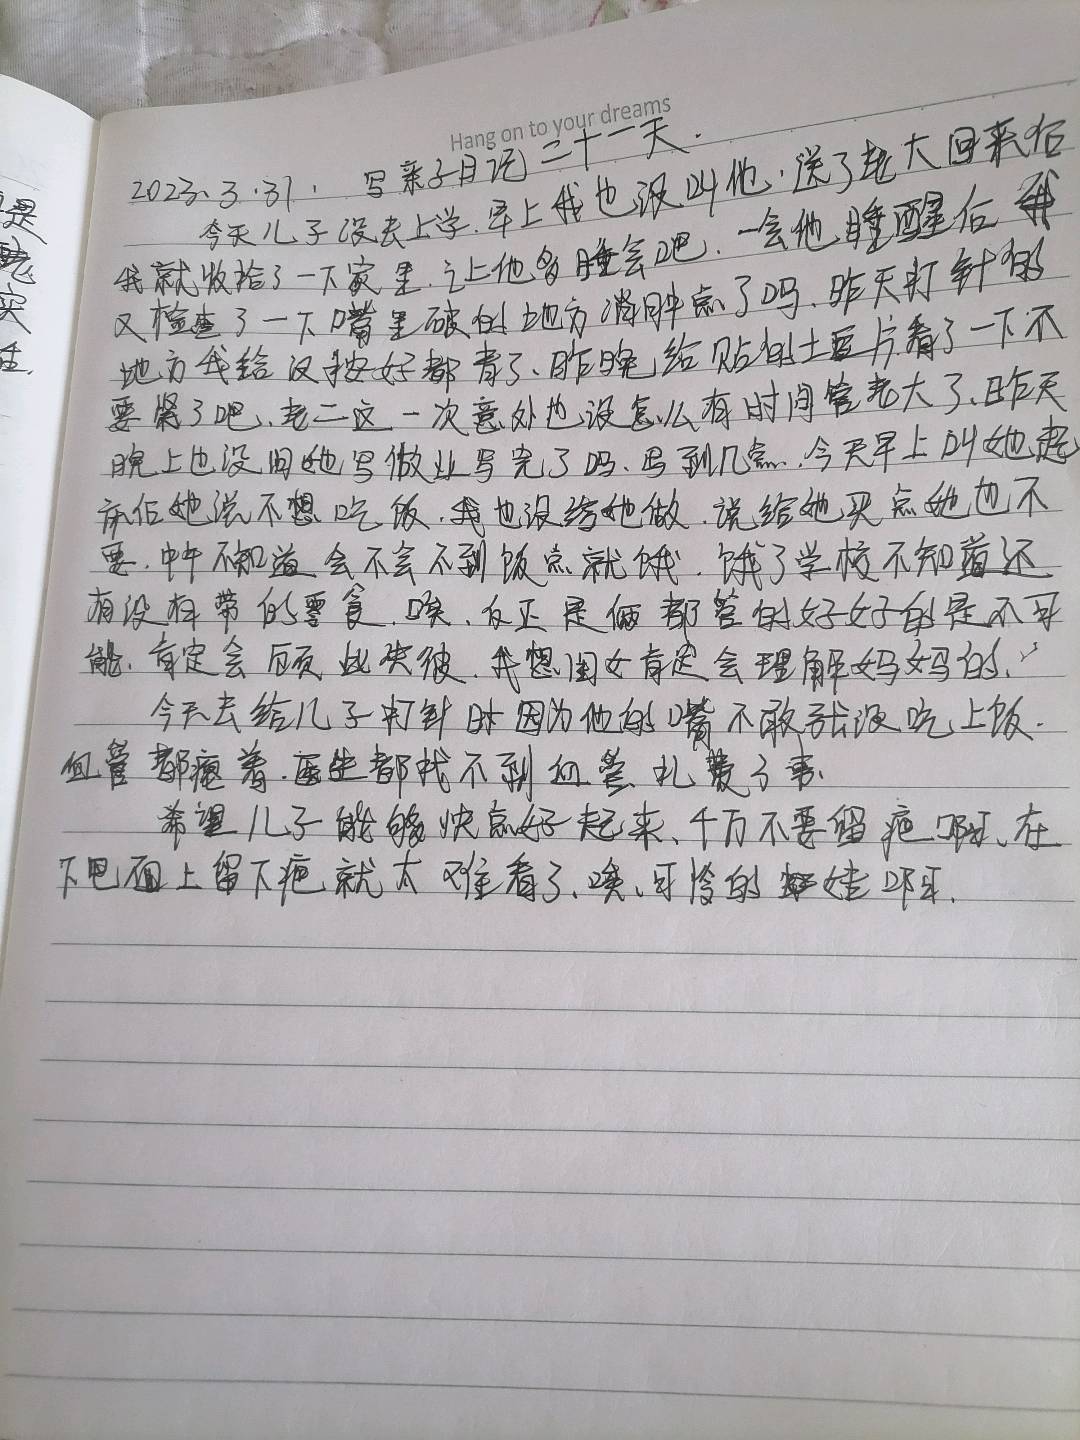 Hang on to your dreams
2023.3.31. 写亲子日记二十一天.
今天儿子没去上学.早上我也没叫他.送了老大回来后
我就收拾了一下家里.让他多睡会吧.一会他睡醒后我
又检查了一下嘴里破的地方消肿点了吗.昨天打针的
地方我给没按好都青了、昨晚给贴的土豆片看了一下不
要紧了吧、老二这一次意外也没怎么有时间管老大了、昨天
晚上也没问她写做业写完了吗、写到几点.今天早上叫她起
床后她说不想吃饭.我也没给她做.说给她买点她也不
要.中午不知道会不会不到饭点就饿.饿了学校不知道还
有没有带的零食.唉、反正是俩都管的好好的是不可
能.肯定会顾此失彼.我想闺女肯定会理解妈妈的.
今天去给儿子打针时因为他的嘴不敢张没吃上饭.
血管都瘪着.医生都找不到血管扎费了事.
希望儿子能够快点好起来、千万不要留疤啊、在
下巴面上留下疤就太难看了、唉、可怜的娃啊.
是
实